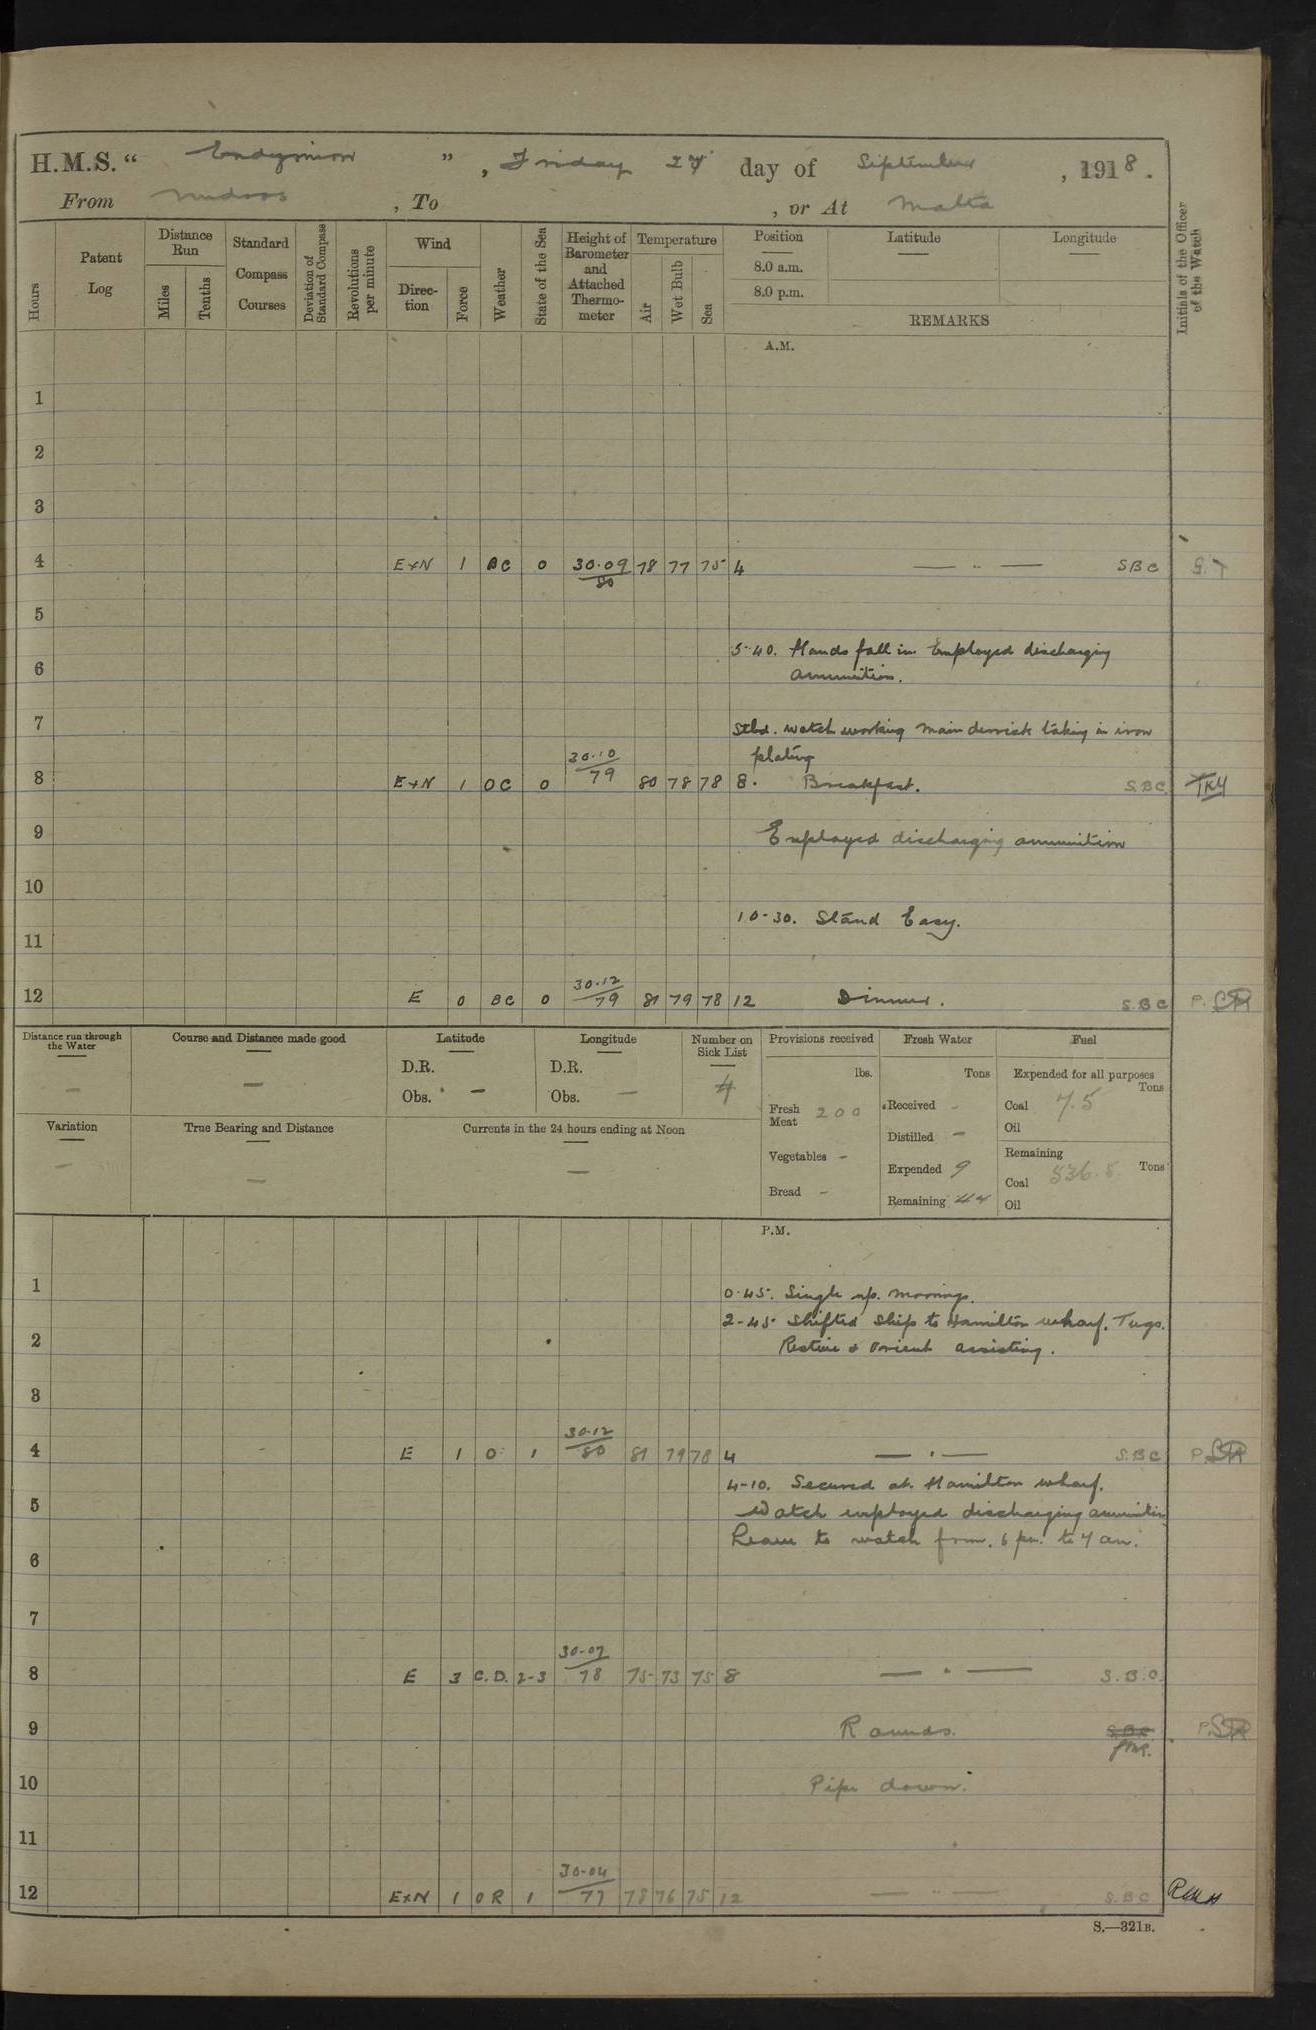 H.M.S. “ Endymion ”, Friday 27 day of September, 1918.
From Mudros, To , or At Malta
Hours
Patent Log
Distance Run
Miles
Tenths
Standard Compass Courses
Deviation of Standard Compass
Revolutions per minute
Wind
Direction
Force
Weather
State of the Sea
Height of Barometer and Attached Thermometer
Temperature
Air
Wet Bulb
Sea
Position
8.0 a.m.
8.0 p.m.
Latitude
Longitude
REMARKS
Initials of the Officer of the Watch
A.M.
1
2
3
4 E×N 1 BC 0 30·09 80 78 77 75 4 — ·· — SBC
5
5-40. Hands fall in. Employed discharging
6
ammunition.
7
Stbd. watch working main derrick taking in iron
plating
8 E×N 1 OC 0 30·10 79 80 78 78 8. Breakfast. SBC
9
Employed discharging ammunition
10
10-30. Stand Easy.
11
12 E 0 BC 0 30·12 79 81 79 78 12 Dinner. S.BC
Distance run through the Water
—
Course and Distance made good
—
Latitude
D.R.
Obs. —
Longitude
D.R.
Obs. —
Number on Sick List
4
Provisions received
lbs.
Fresh Meat 200
Vegetables -
Bread -
Fresh Water
Tons
Received -
Distilled -
Expended 9
Remaining
Fuel
Expended for all purposes
Tons
Coal 7.5
Oil
Remaining
Tons
Coal 536.5
Oil
Variation
—
True Bearing and Distance
—
Currents in the 24 hours ending at Noon
—
P.M.
1
0·45. Single up moorings.
2-45 Shifted ship to Hamilton wharf. Tugs.
2
& Orient assisting.
3
4 E 1 O 1 30·12 80 81 79 78 4 — · — S.BC
4-10. Secured at Hamilton wharf.
5
Watch employed discharging ammunition
Leave to watch from. 6 pm. to 7 am.
6
7
8 E 3 C.D. 2-3 30-07 78 75 73 75 8 — · — S.B.C.
9 Rounds.
10 Pipe down.
11
12 E×N 1 OR 1 30-04 77 78 76 75 12 — ·· — S.BC
S.—321B.